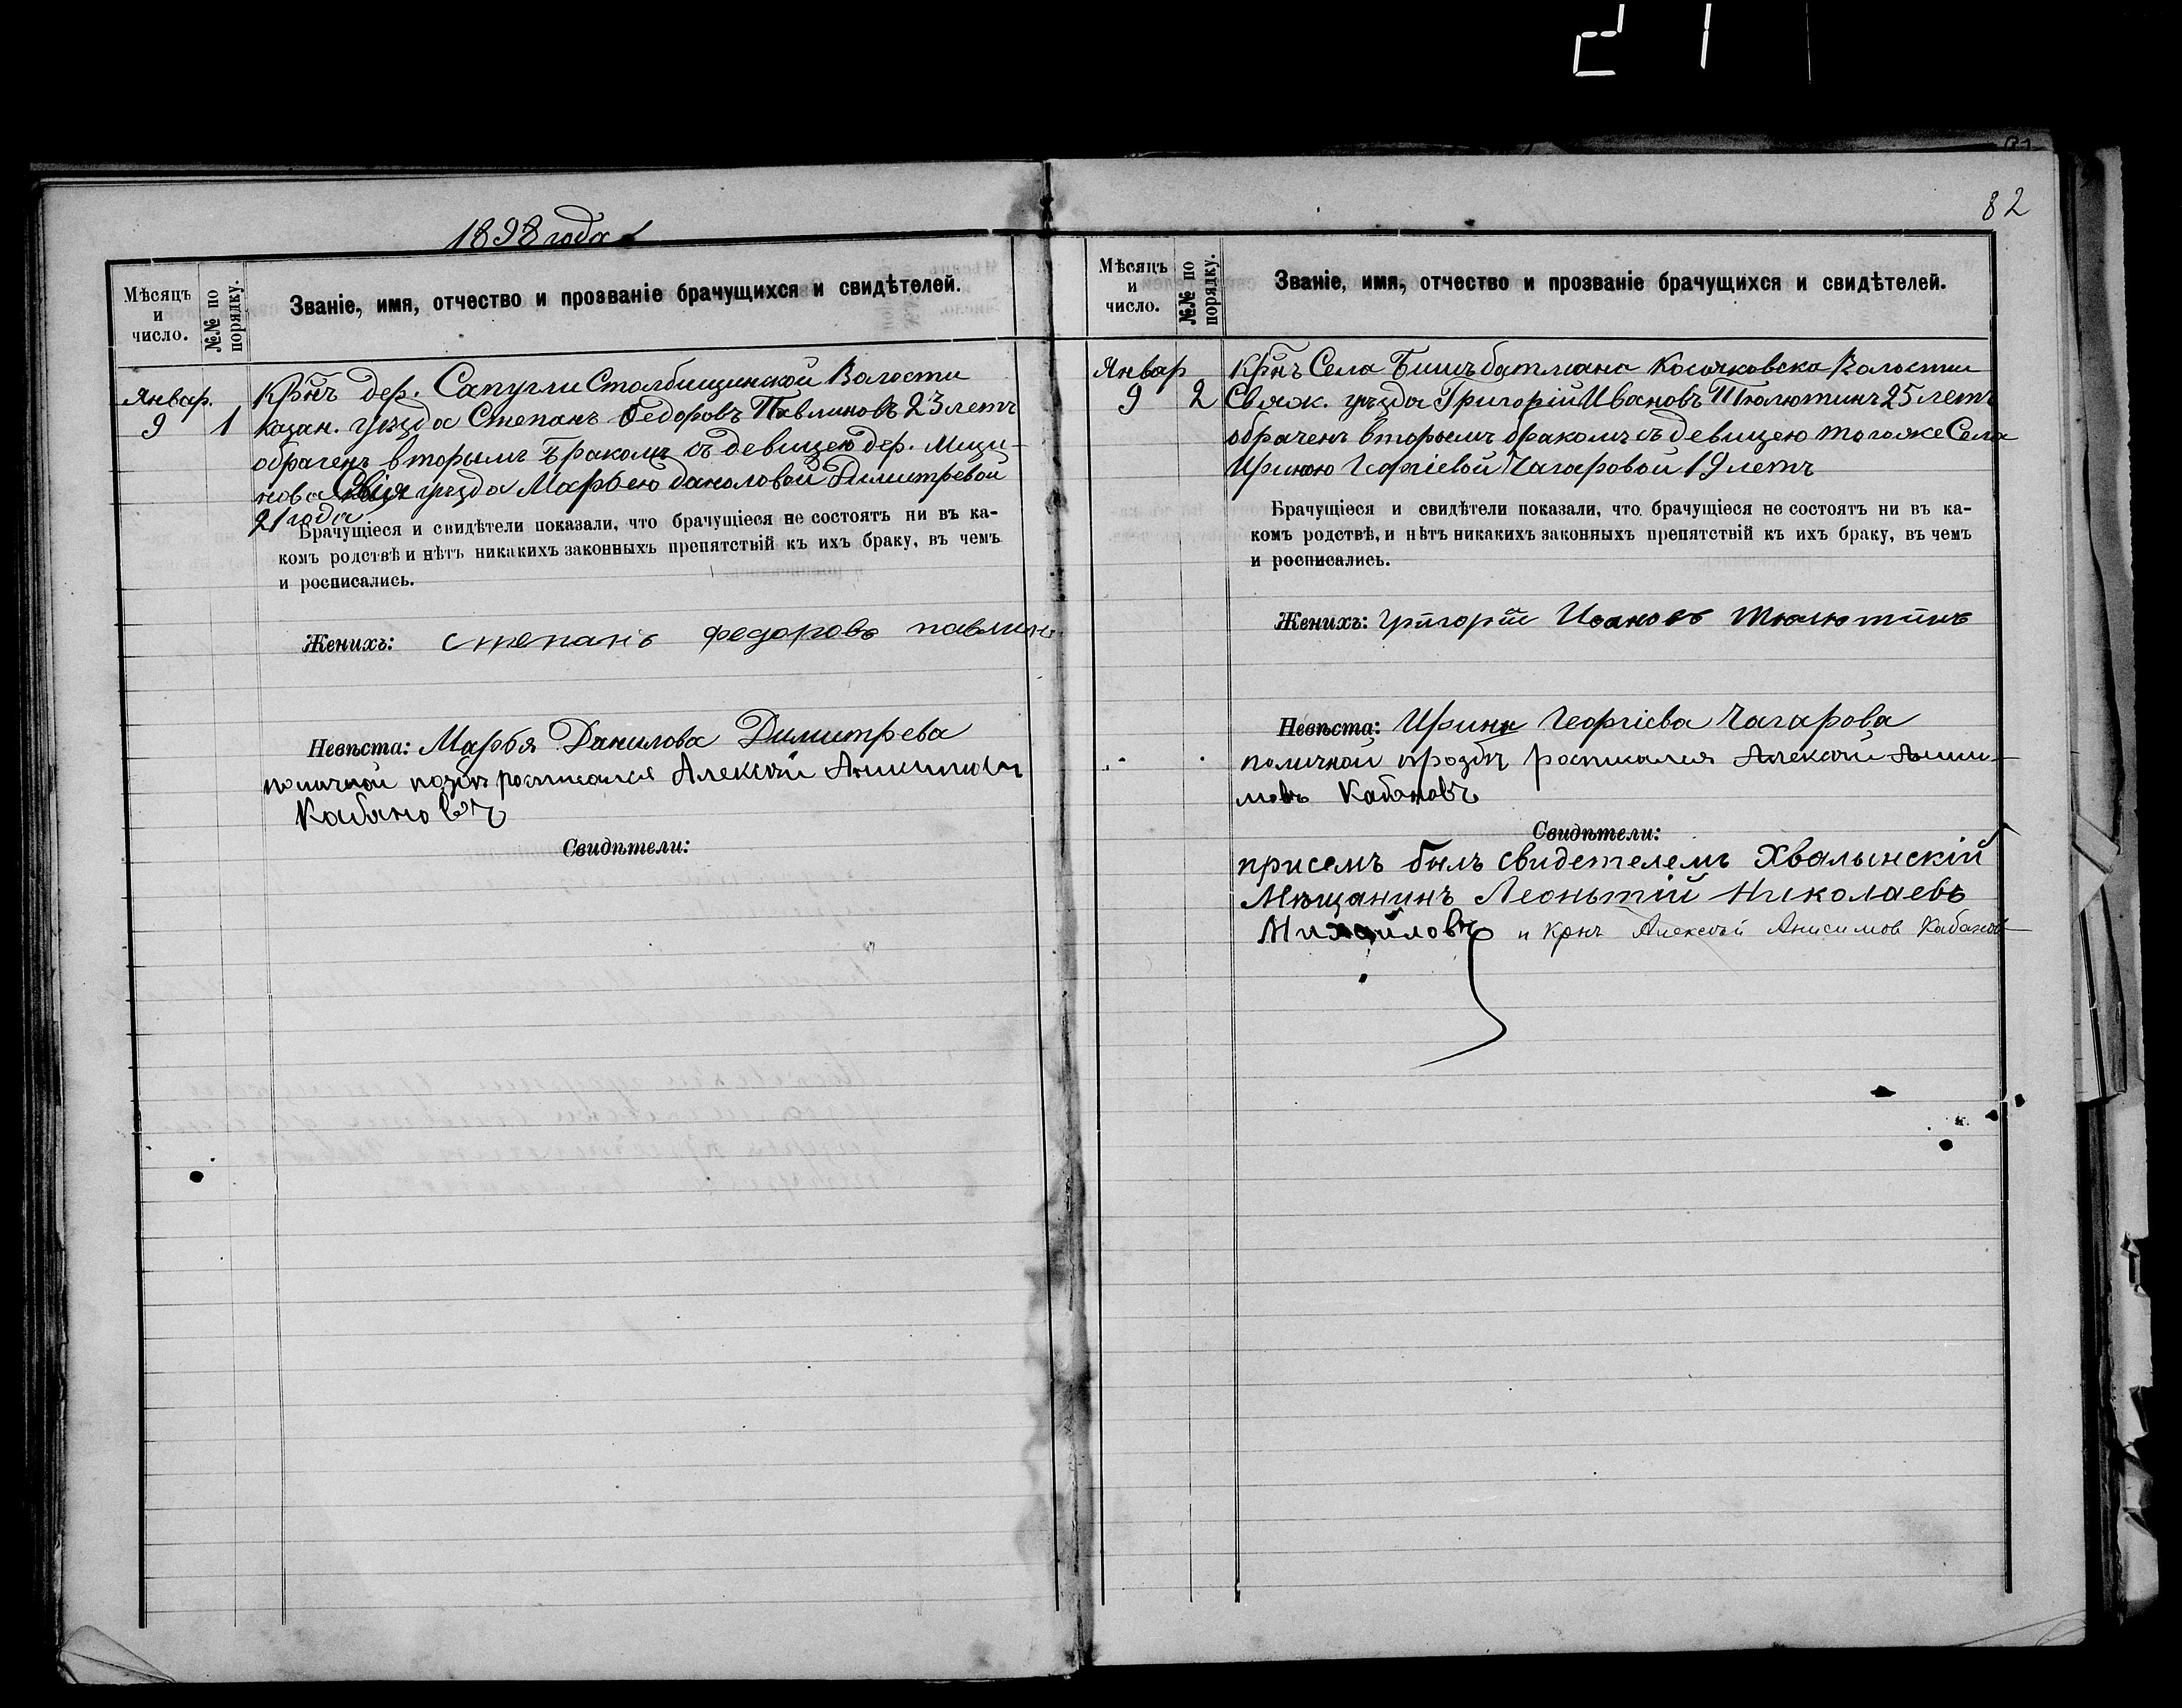 21
82
1898 года
Мѣсяцъ
и
число.
№№ по
порядку.
Званіе, имя, отчество и прозваніе брачущихся и свидѣтелей.
Январ.
9
1
Крнъ дер. Сапугли Столбищинской Волости
казан. уѣзда Степанъ Федоровъ Павлиновъ 23 летъ
обрачен вторымъ бракомъ съ девицею дер. Мици-
нова Свіяж уѣзда Марьею Даниловой Димитревой
21 года
Брачущіеся и свидѣтели показали, что брачущіеся не состоятъ ни въ ка-
комъ родствѣ и нѣтъ никакихъ законныхъ препятствій къ ихъ браку, въ чемъ
и росписались.
Женихъ: степанъ федоровъ павлин
Невѣста: Марья Данилова Димитрева
поличной прозбѣ росписался Алексѣй Анисимовъ
Кабановъ
Свидѣтели:
Мѣсяцъ
и
число.
№№ по
порядку.
Званіе, имя, отчество и прозваніе брачущихся и свидѣтелей.
Январ
9
2
Крнъ Села Бишъбатмана Косяковска Волости
Свяж. уѣзда Григорій Ивановъ Тюлютинъ 25 летъ
обраченъ вторымъ бракомъ съ девицею тогоже Села
Ириною Георгіевой Чагаровой 19 летъ
Брачущіеся и свидѣтели показали, что брачущіеся не состоятъ ни въ ка-
комъ родствѣ, и нѣтъ никакихъ законныхъ препятствій къ ихъ браку, въ чемъ
и росписались.
Женихъ: григорій Ивановъ тюлютинъ
Невѣста: Ирина Георгіева Чагарова
поличной прозбѣ росписался Алексѣй Аниси-
мовъ Кабановъ
Свидѣтели:
присемъ былъ свидетелемъ Хвалынскій
Мѣщанинъ Леонтій Николаевъ
Михайловъ и Крнъ Алексѣй Анисимов Кабанов